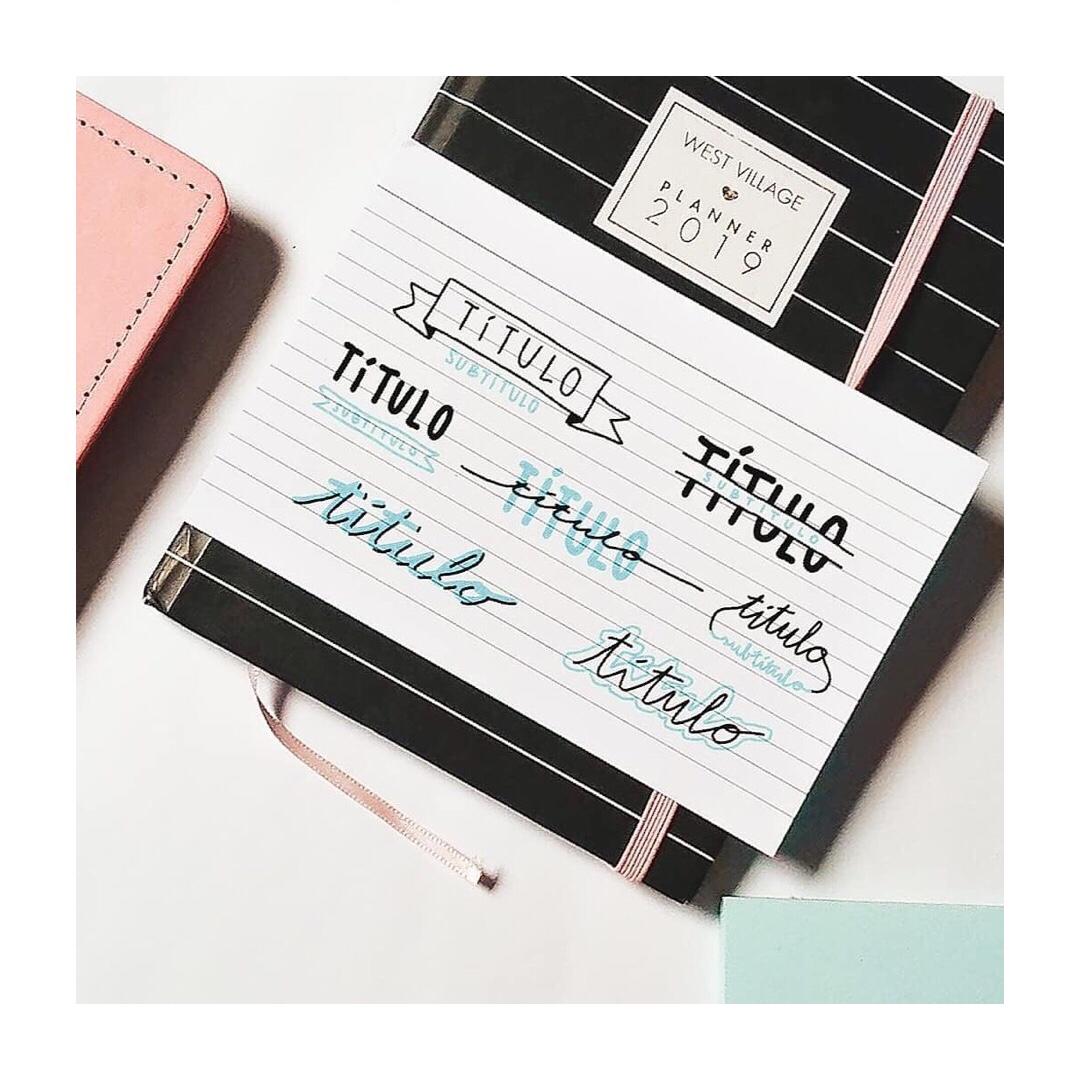 WEST VILLAGE
PLANNER
2019
TÍTULO
SUBTÍTULO
TÍTULO
SUBTÍTULO
TÍTULO
SUBTÍTULO
TÍTULO
título
título
título
subtítulo
título